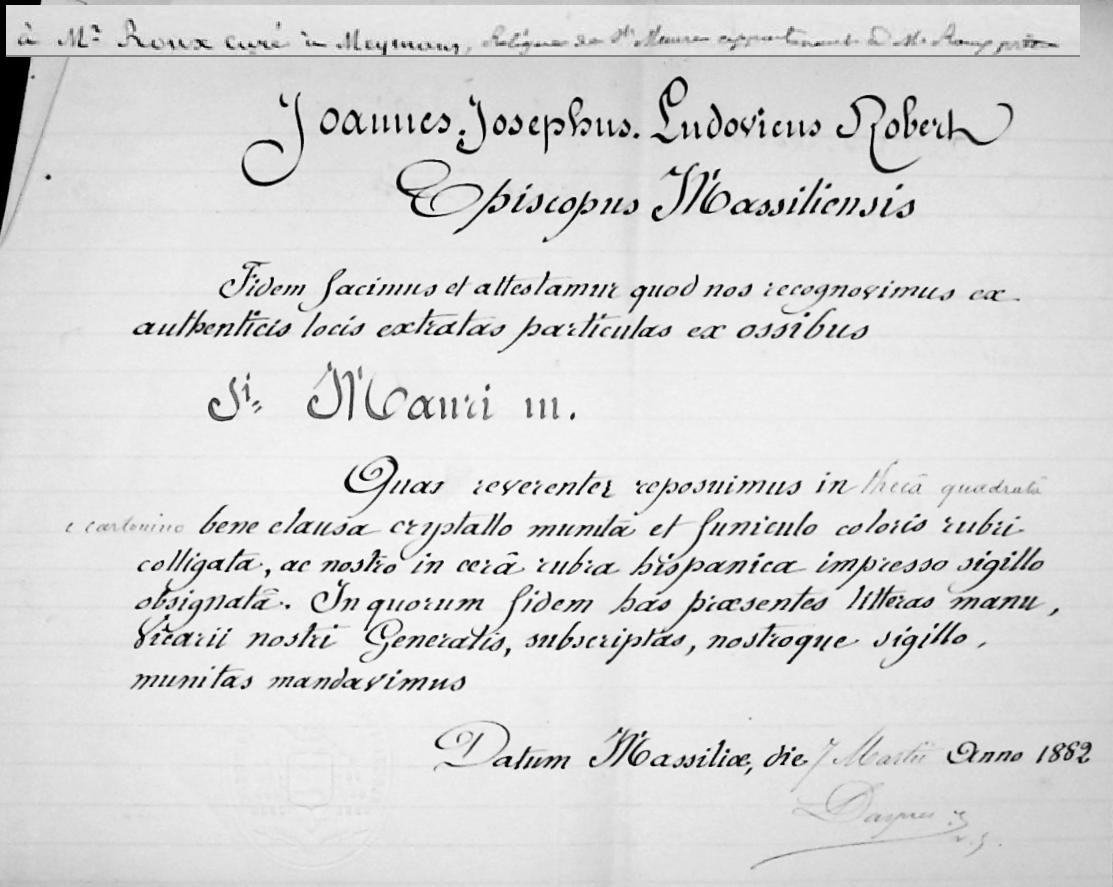 à Mr Roux curé à Meymans, Relique de St Maure appartenant à Mr Roux prêtre
Joannes. Josephus. Ludovicus Robert
Episcopus Massiliensis
Fidem facimus et attestamur quod nos recognovimus ex
authenticis locis extratas particulas ex ossibus
Sti. Mauri m.
Quas reverenter reposuimus in thecâ quadratâ
e cartonino bene clausa cryptallo munitâ et funiculo coloris rubri
colligatâ, ac nostro in cerâ rubra hispanica impresso sigillo
obsignatâ. In quorum fidem has præsentes litteras manu,
Vicarii nostri Generalis, subscriptas, nostroque sigillo,
munitas mandavimus
Datum Massiliæ, die 7 Martii Anno 1882
v. g.